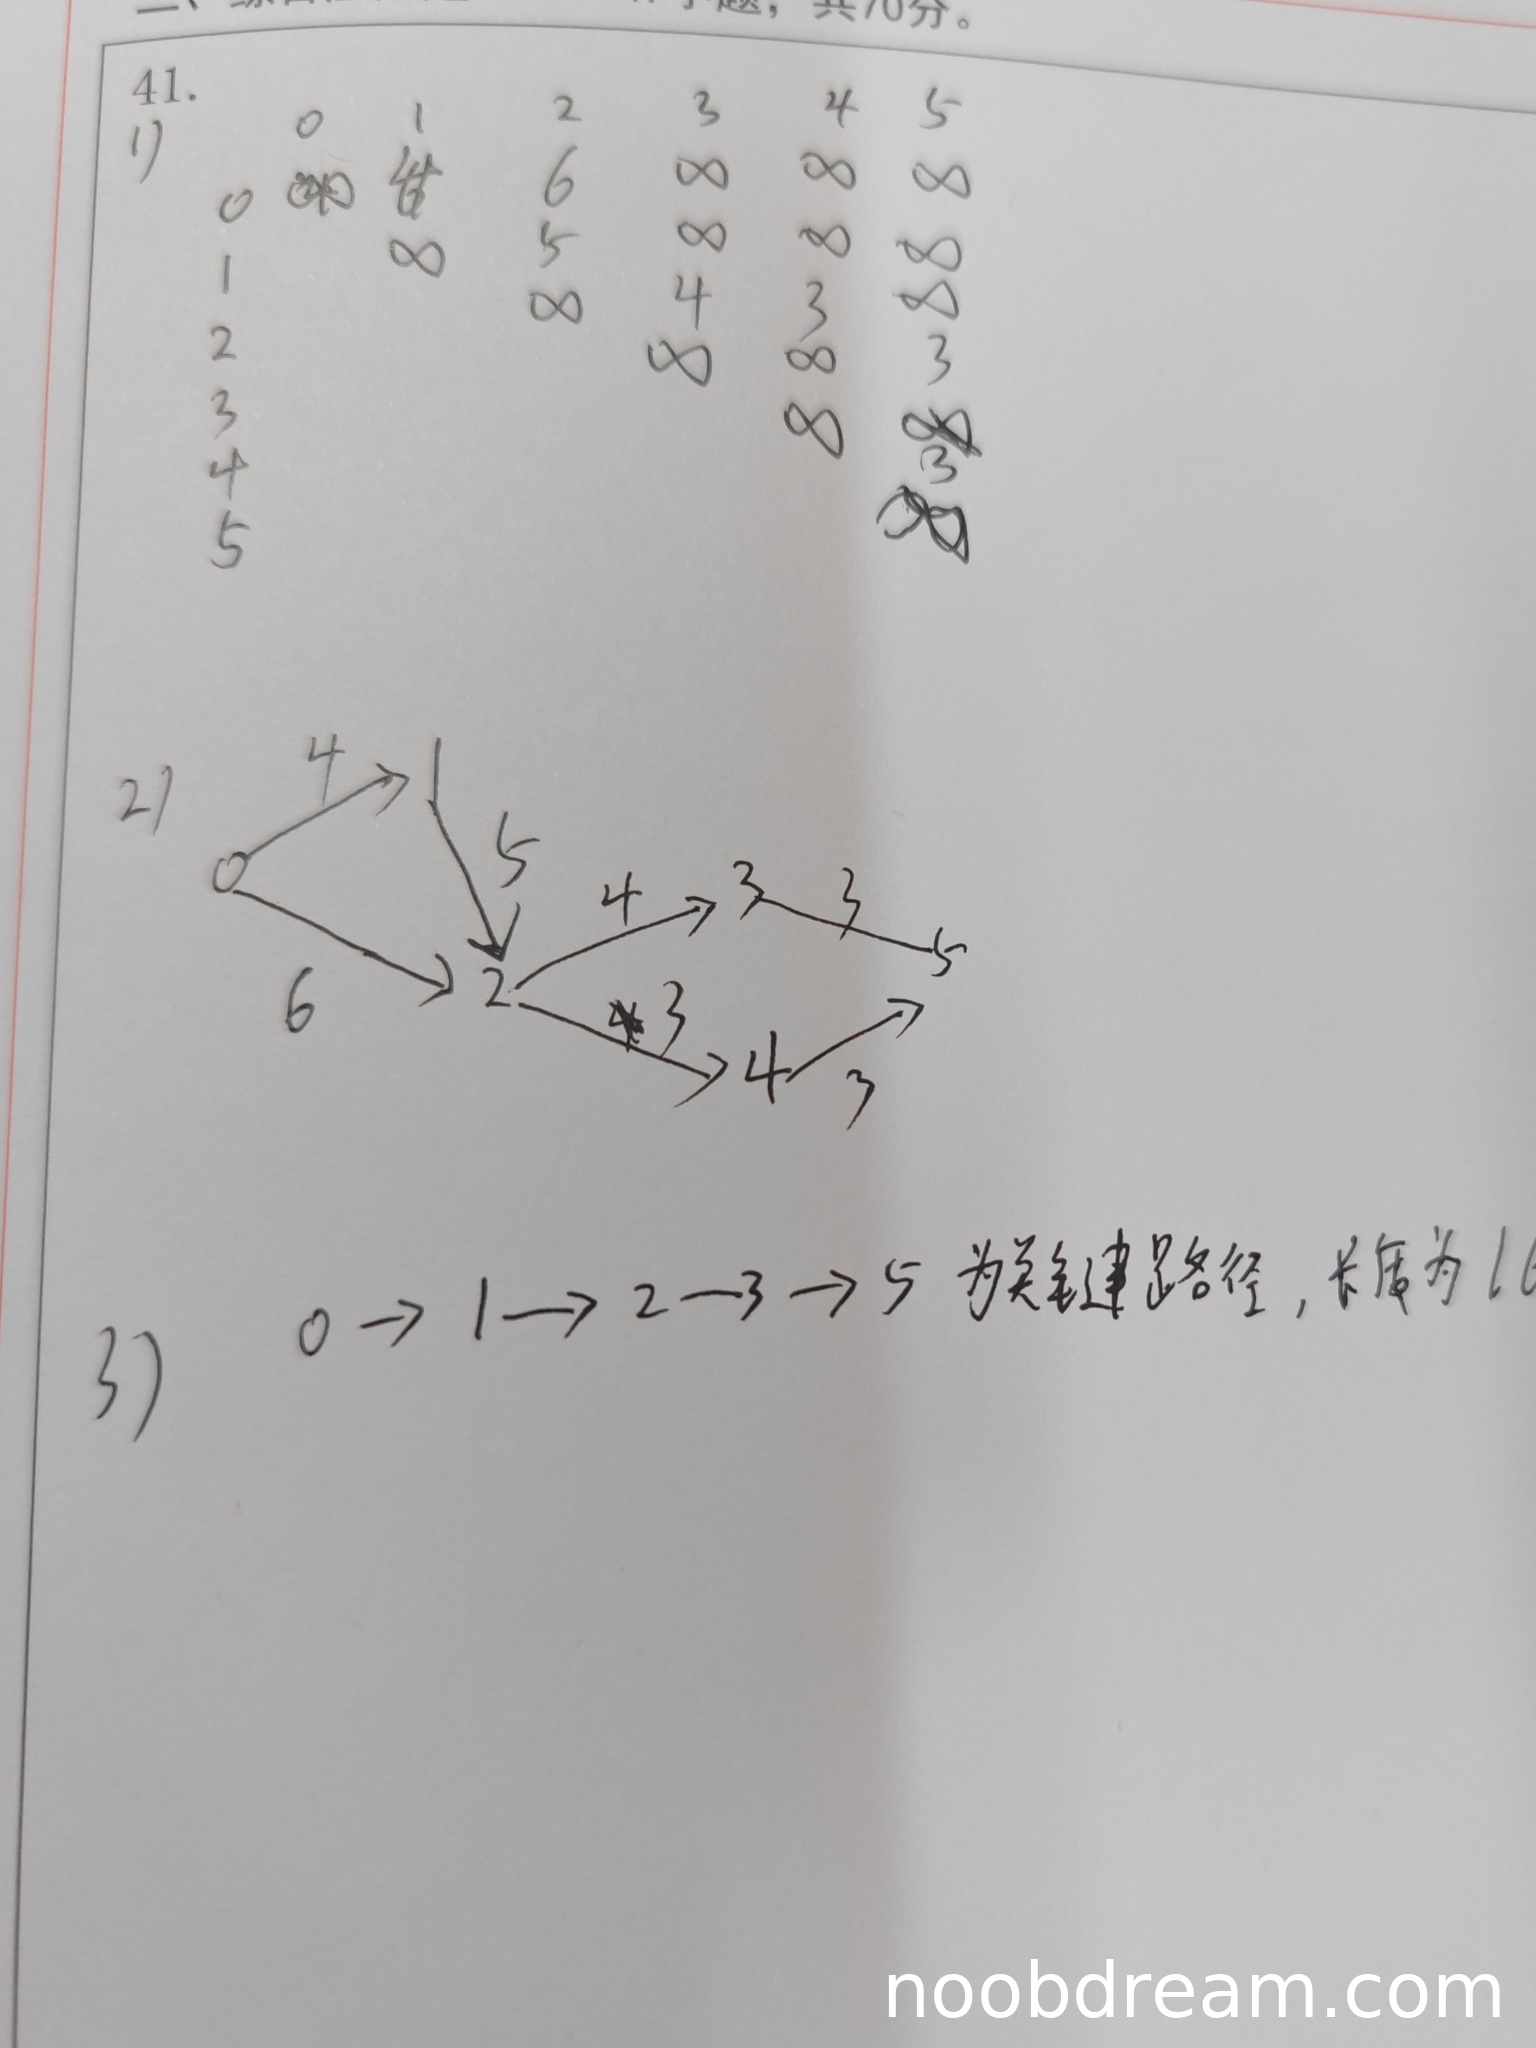 共70分。
41.
1)
0 1 2 3 4 5
0 4 6 ∞ ∞ ∞
1 ∞ 5 ∞ ∞ ∞
2 ∞ 4 3 ∞
3 ∞ ∞ 3
4 ∞ 3
5 ∞
2)
0 4 1 5
6 2 4 3 3 5
3 4 3
3) 0 → 1 → 2 — 3 → 5 为关键路径，长度为16
noobdream.com